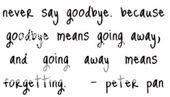 never say goodbye. because
goodbye means going away,
and going away means
forgetting. - peter pan